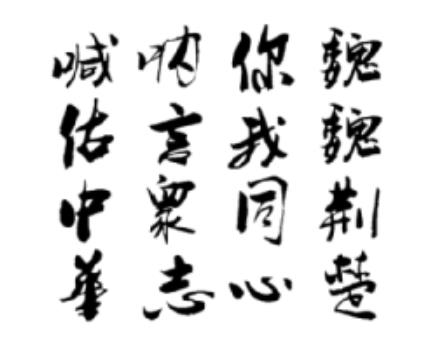 魏魏荆楚
你我同心
呐言眾志
喊估中華